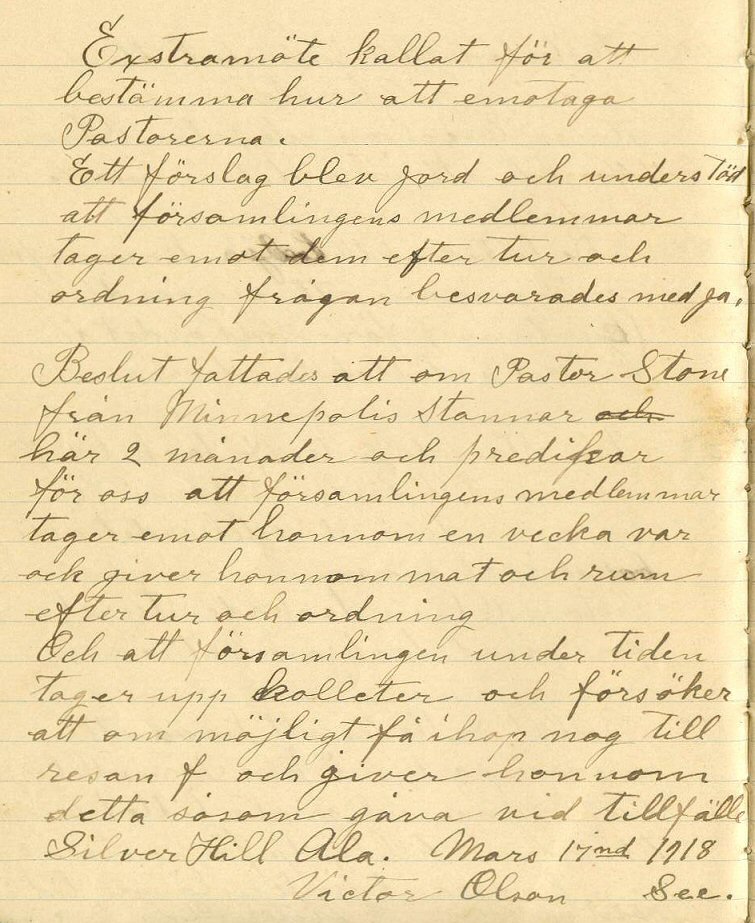 Exstramöte kallat för att
bestämma hur att emotaga
Pastorerna.
Ett förslag blev jord och understöd
att församlingens medlemmar
tager emot dem efter tur och
ordning frågan besvarades med ja.
Beslut fattades att om Pastor Stone
från Minnepolis stannar och
här 2 månader och predikar
för oss att församlingens medlemmar
tager emot honnom en vecka var
ock giver honnom mat och rum
efter tur och ordning
Och att församlingen under tiden
tager upp kolleter och försöker
att om möjligt få ihop nog till
resan f och giver honnom
detta såsom gåva vid tillfälle
Silver Hill Ala. Mars 17nd 1918
Victor Olson Sec.